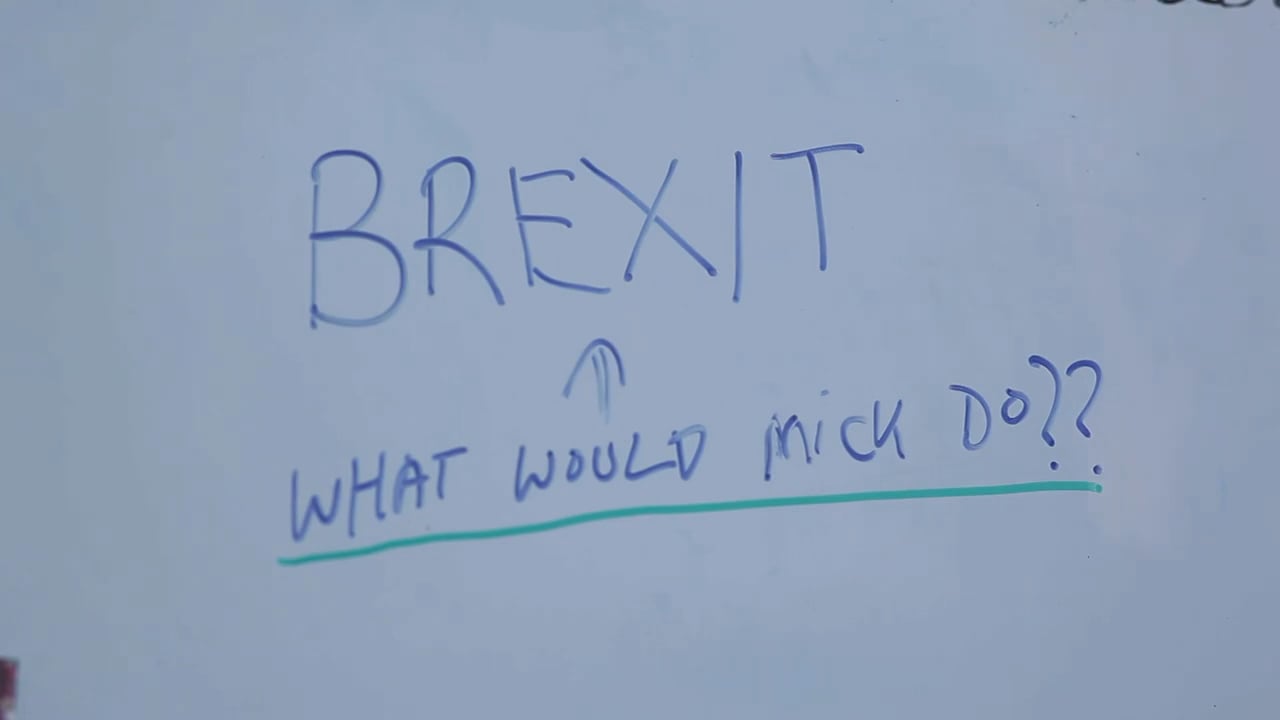 BREXIT
WHAT WOULD MICK DO??